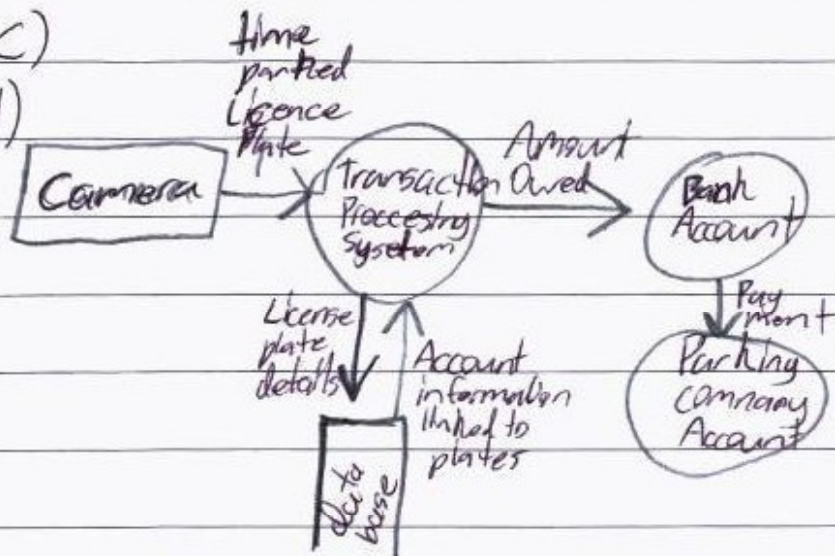 c)
time
parked
Licence
Plate
Camera
Transaction
Proccesing
System
Amount
Owed
Bank
Account
Pay
ment
Parking
company
Account
License
plate
details
Account
information
linked to
plates
data
base